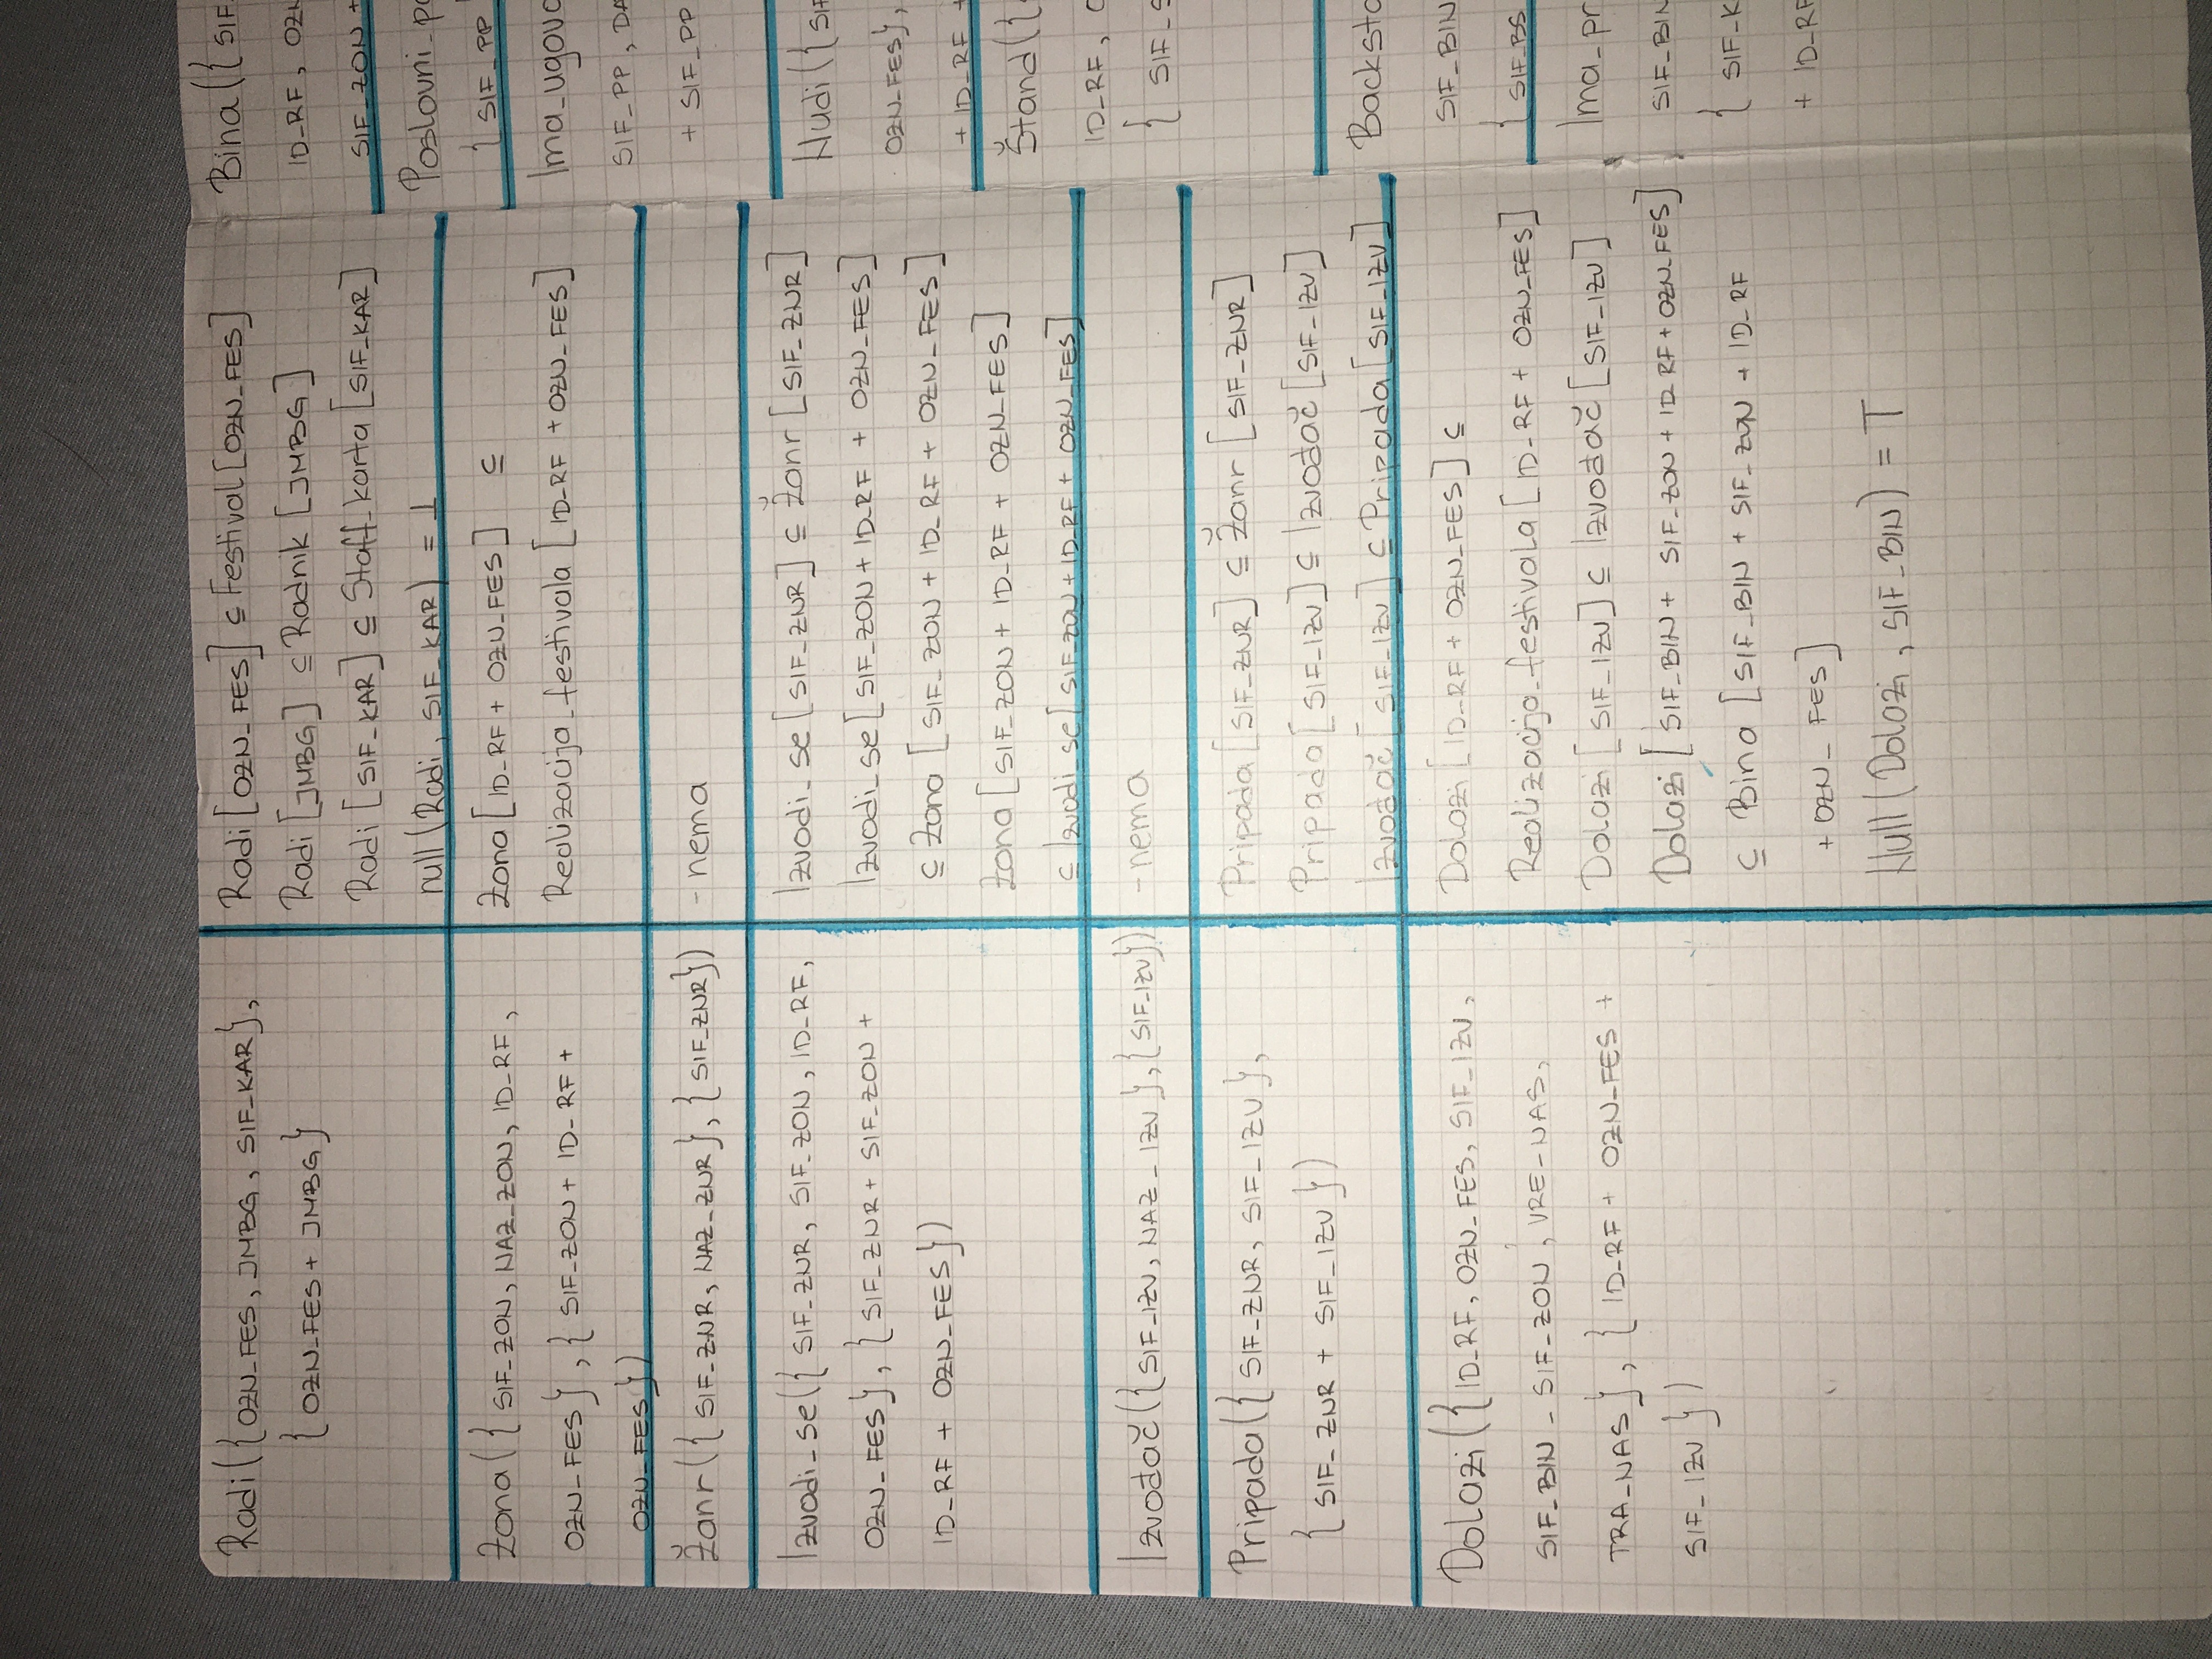 Radi({OZN_FES, JMBG, SIF_KAR},
{OZN_FES + JMBG}
Radi[OZN_FES] ⊆ Festival[OZN_FES]
Radi[JMBG] ⊆ Radnik[JMBG]
Radi[SIF_KAR] ⊆ Staff_karta[SIF_KAR]
null(Radi, SIF_KAR) = ⊥
Zona({SIF_ZON, NAZ_ZON, ID_RF,
OZN_FES}, {SIF_ZON + ID_RF +
OZN_FES})
Zona[ID_RF + OZN_FES] ⊆
Realizacija_festivala[ID_RF + OZN_FES]
Žanr({SIF_ZNR, NAZ_ZNR}, {SIF_ZNR})
- nema
Izvodi_se({SIF_ZNR, SIF_ZON, ID_RF,
OZN_FES}, {SIF_ZNR + SIF_ZON +
ID_RF + OZN_FES})
Izvodi_se[SIF_ZNR] ⊆ Žanr[SIF_ZNR]
Izvodi_se[SIF_ZON + ID_RF + OZN_FES]
⊆ Zona[SIF_ZON + ID_RF + OZN_FES]
Zona[SIF_ZON + ID_RF + OZN_FES]
⊆ Izvodi_se[SIF_ZON + ID_RF + OZN_FES]
Izvođač({SIF_IZV, NAZ_IZV}, {SIF_IZV})
- nema
Pripada({SIF_ZNR, SIF_IZV},
{SIF_ZNR + SIF_IZV})
Pripada[SIF_ZNR] ⊆ Žanr[SIF_ZNR]
Pripada[SIF_IZV] ⊆ Izvođač[SIF_IZV]
Izvođač[SIF_IZV] ⊆ Pripada[SIF_IZV]
Dolazi({ID_RF, OZN_FES, SIF_IZV,
SIF_BIN - SIF_ZON, VRE_NAS,
TRA_NAS}, {ID_RF + OZN_FES +
SIF_IZV})
Dolazi[ID_RF + OZN_FES] ⊆
Realizacija_festivala[ID_RF + OZN_FES]
Dolazi[SIF_IZV] ⊆ Izvođač[SIF_IZV]
Dolazi[SIF_BIN + SIF_ZON + ID_RF + OZN_FES]
⊆ Bina[SIF_BIN + SIF_ZON + ID_RF
+ OZN_FES]
Null(Dolazi, SIF_BIN) = T
Bina({SIF
ID_RF, OZN
SIF_ZON +
Poslovni_p
{SIF_PP
Ima_ugovo
SIF_PP, DA
+ SIF_PP
Nudi({SIF
OZN_FES},
+ ID_RF +
Štand({
ID_RF, O
{SIF_S
Backsta
SIF_BIN
{SIF_BS
Ima_pr
SIF_BIN
{SIF_K
+ ID_RF